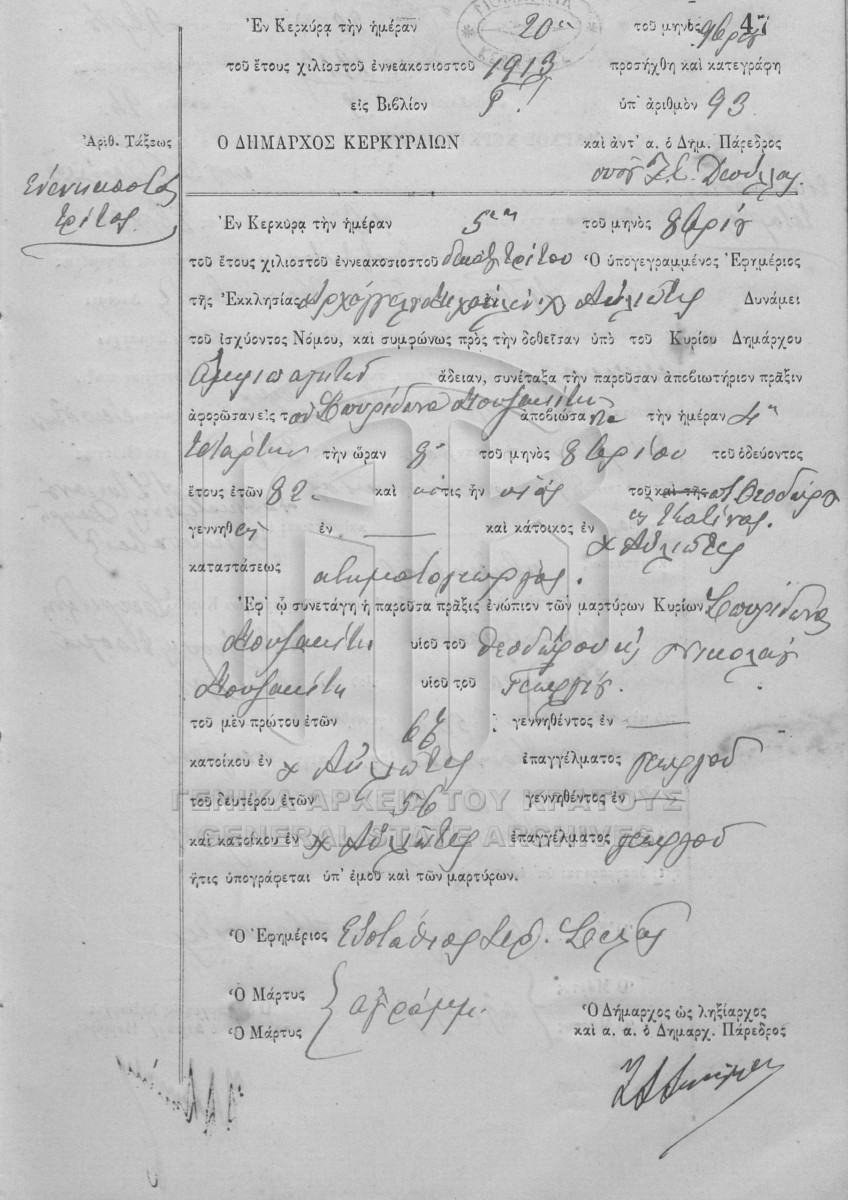 47
Ἐν Κερκύρᾳ τὴν ἡμέραν 20ην τοῦ μηνὸς 9βρίου
τοῦ ἔτους χιλιοστοῦ ἐννεακοσιοστοῦ 1913 προσήχθη καὶ κατεγράφη
εἰς Βιβλίον Γ! ὑπ' ἀριθμὸν 93
Ἀριθ. Τάξεως
Ο ΔΗΜΑΡΧΟΣ ΚΕΡΚΥΡΑΙΩΝ καὶ ἀντ' α. ὁ Δημ. Πάρεδρος
Ἐνενηκοστὸς
τρίτος
Ἐν Κερκύρᾳ τὴν ἡμέραν 5ην τοῦ μηνὸς 8βρίου
τοῦ ἔτους χιλιοστοῦ ἐννεακοσιοστοῦ δεκάτου τρίτου Ὁ ὑπογεγραμμένος Ἐφημέριος
τῆς Ἐκκλησίας Ἀρχαγγέλου Μιχαὴλ ἐν χ Αὐλιῶτες Δυνάμει
τοῦ ἰσχύοντος Νόμου, καὶ συμφώνως πρὸς τὴν δοθεῖσαν ὑπὸ τοῦ Κυρίου Δημάρχου
ἄδειαν, συνέταξα τὴν παροῦσαν ἀποβιωτήριον πρᾶξιν
ἀφορῶσαν εἰς τὸν Σπυρίδωνα Κουζακίτη ἀποβιώσαντα τὴν ἡμέραν 4ην
τετάρτην τὴν ὥραν 8 τοῦ μηνὸς 8βρίου τοῦ ὁδεύοντος
ἔτους ἐτῶν 82 καὶ ὅστις ἦν υἱὸς τοῦ καὶ τῆς Θεοδώρου
κ Κατίνας
γεννηθεὶς ἐν — καὶ κάτοικος ἐν χ Αὐλιῶτες
καταστάσεως κτηματογεωργὸς.
Ἐφ' ᾧ συνετάγη ἡ παροῦσα πρᾶξις ἐνώπιον τῶν μαρτύρων Κυρίων Σπυρίδωνα
Κουζακίτη υἱοῦ τοῦ Θεοδώρου κ Νικολάου
Κουζακίτη υἱοῦ τοῦ Γεωργίου.
τοῦ μὲν πρώτου ἐτῶν γεννηθέντος ἐν —
κατοίκου ἐν χ Αὐλιῶτες ἐπαγγέλματος γεωργοῦ
τοῦ δευτέρου ἐτῶν 56 γεννηθέντος ἐν —
καὶ κατοίκου ἐν χ Αὐλιῶτες ἐπαγγέλματος γεωργοῦ
ἥτις ὑπογράφεται ὑπ' ἐμοῦ καὶ τῶν μαρτύρων.
Ὁ Ἐφημέριος Εὐστάθιος Ἱερ.
Ὁ Μάρτυς
Ὁ Μάρτυς
ἀγράμμ.
Ὁ Δήμαρχος ὡς ληξίαρχος
καὶ α. α. ὁ Δημαρχ. Πάρεδρος
ΓΕΝΙΚΑ ΑΡΧΕΙΑ ΤΟΥ ΚΡΑΤΟΥΣ
GENERAL STATE ARCHIVES